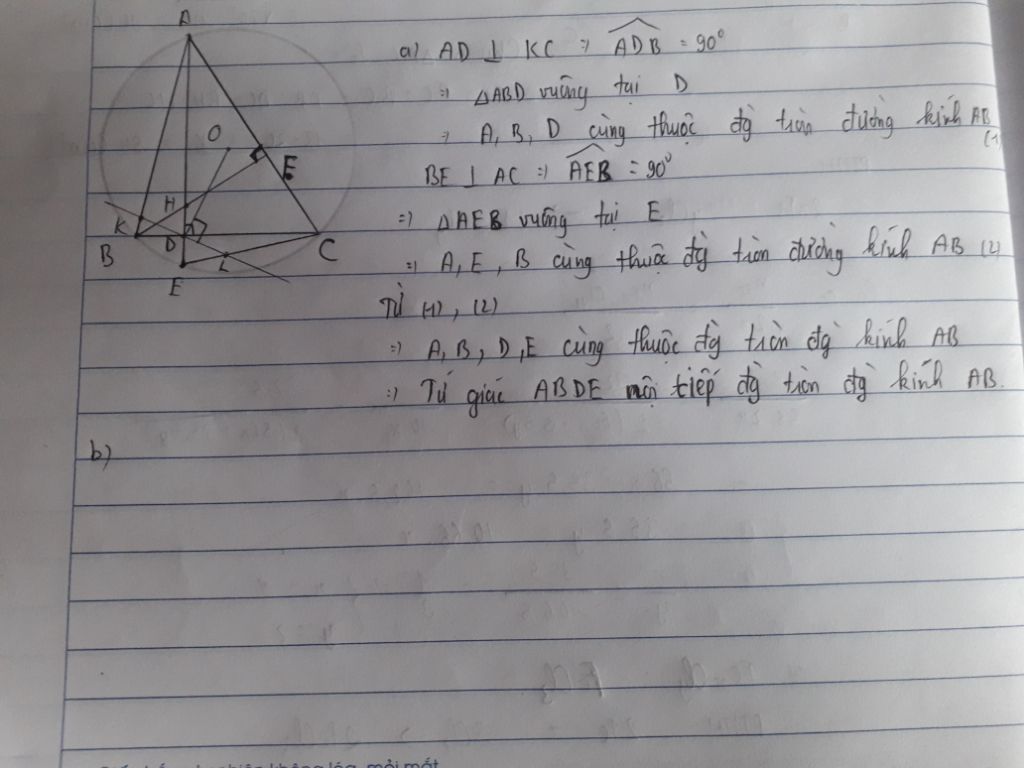 A
O
E
H
K
B
D
L
C
E
a) AD ⊥ KC => ADB = 90°
=> △ABD vuông tại D
=> A, B, D cùng thuộc đg tròn đường kính AB (1)
BE ⊥ AC => AEB = 90°
=> △AEB vuông tại E
=> A, E, B cùng thuộc đg tròn đường kính AB (2)
Từ (1), (2)
=> A, B, D, E cùng thuộc đg tròn đg kính AB
=> Tứ giác ABDE nội tiếp đg tròn đg kính AB.
b)